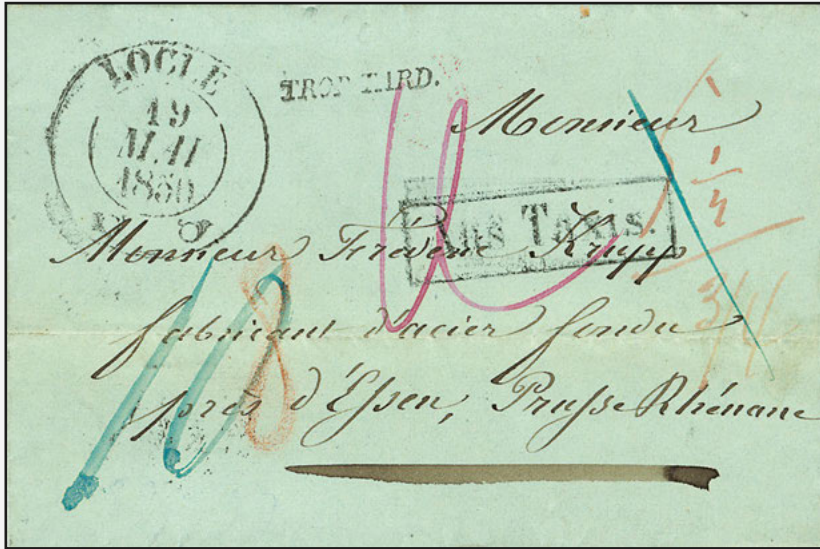 LOCLE
19
MAI
1850
TROP TARD.
Monsieur
Aus Taxis.
Monsieur Fréderic Krupp
fabricant d'acier fondu
près d'Essen, Prusse Rhénane
10
8
1
1/4
3/4